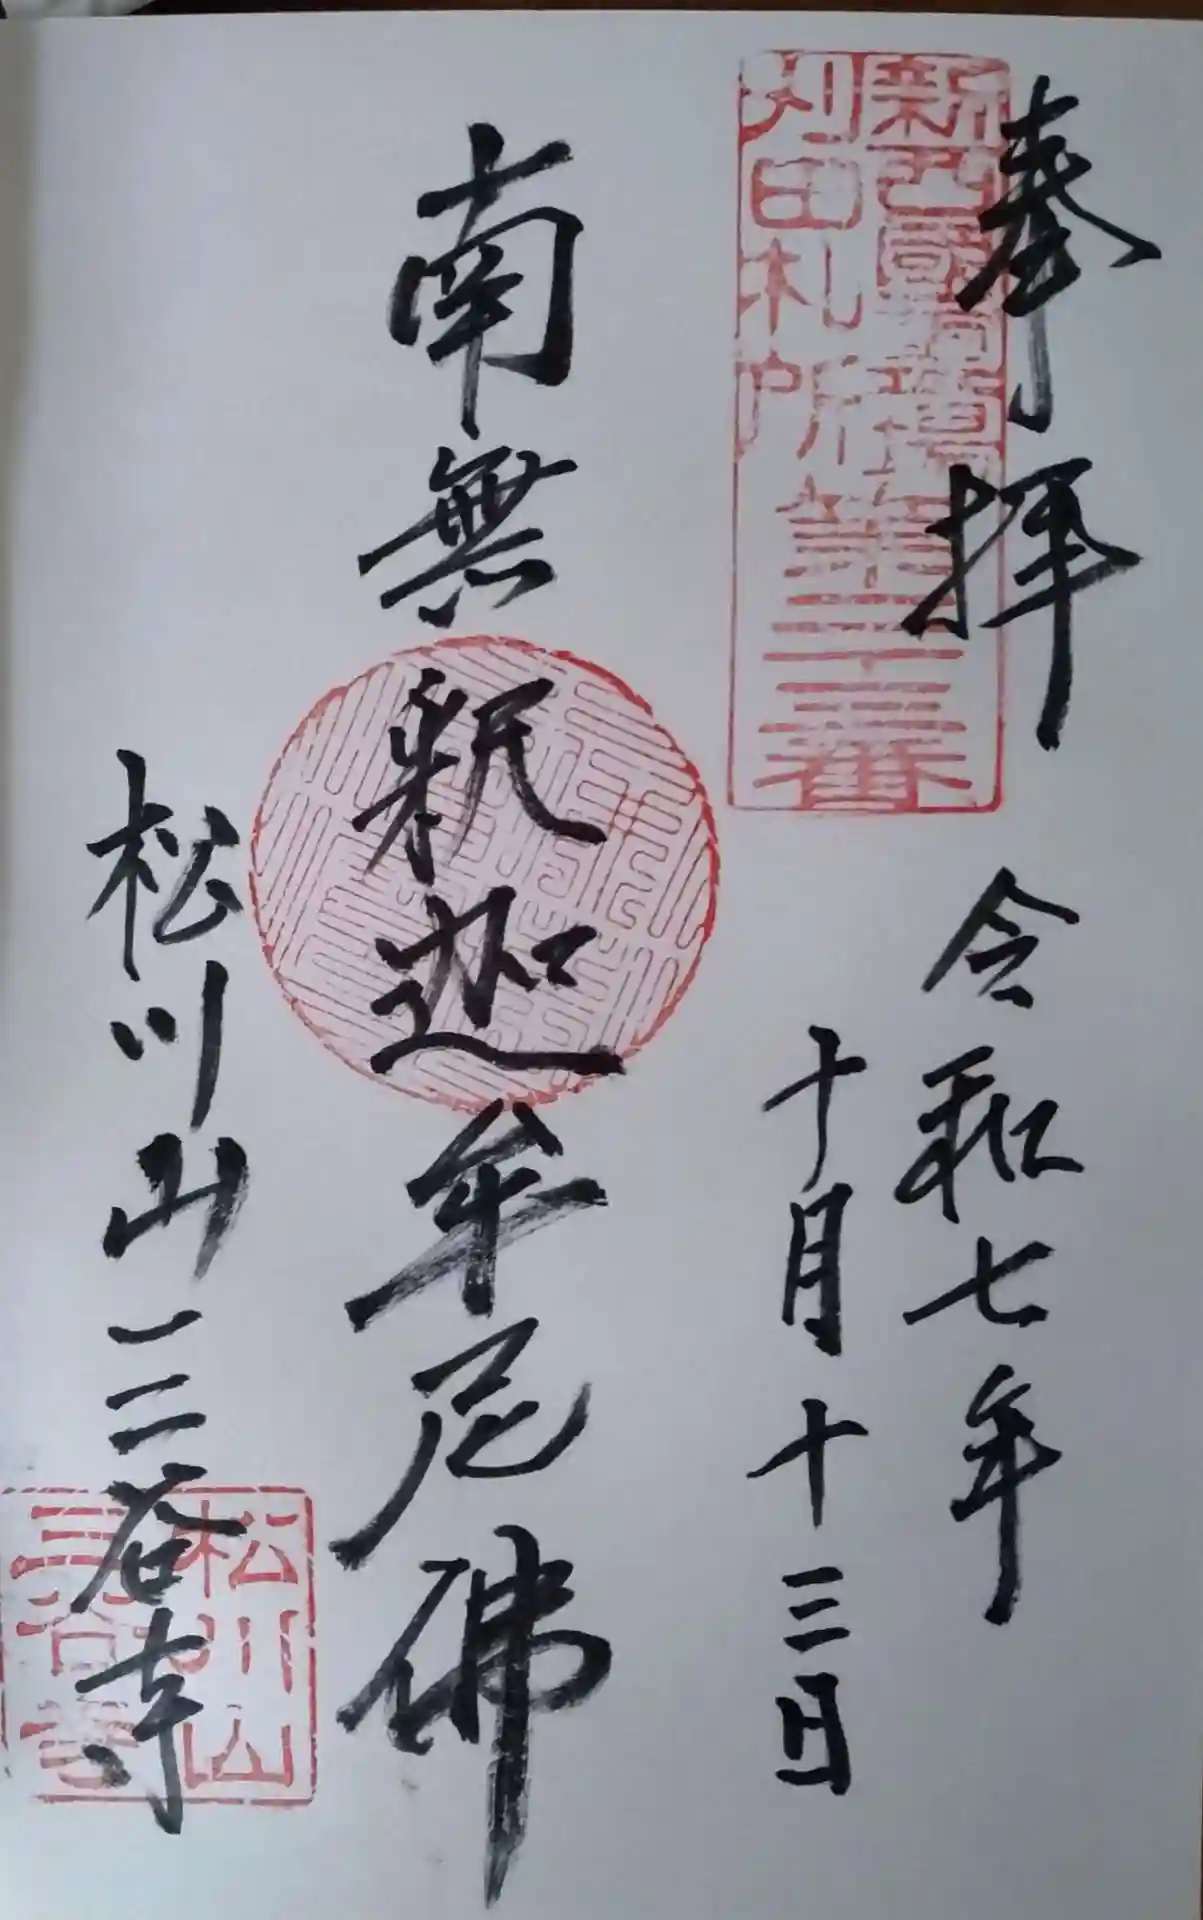 奉拝
令和七年
十月十三日
新西國
刈田札所
第二十三番
南無釈迦牟尼佛
松川山三谷寺
松川山
三谷寺